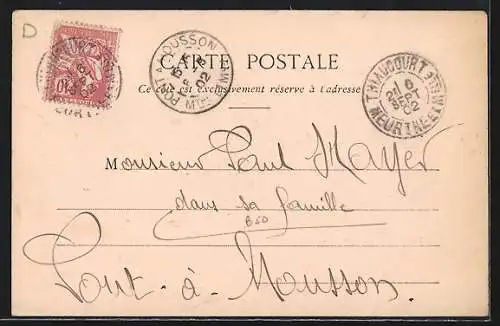 D
CARTE POSTALE
Ce côté est exclusivement réservé à l'adresse
PONT A MOUSSON
02
THIAUCOURT
MEURTHE-ET-MLLE
02
Monsieur Paul Mayer
dans sa famille
B50
Pont-à-Mousson.